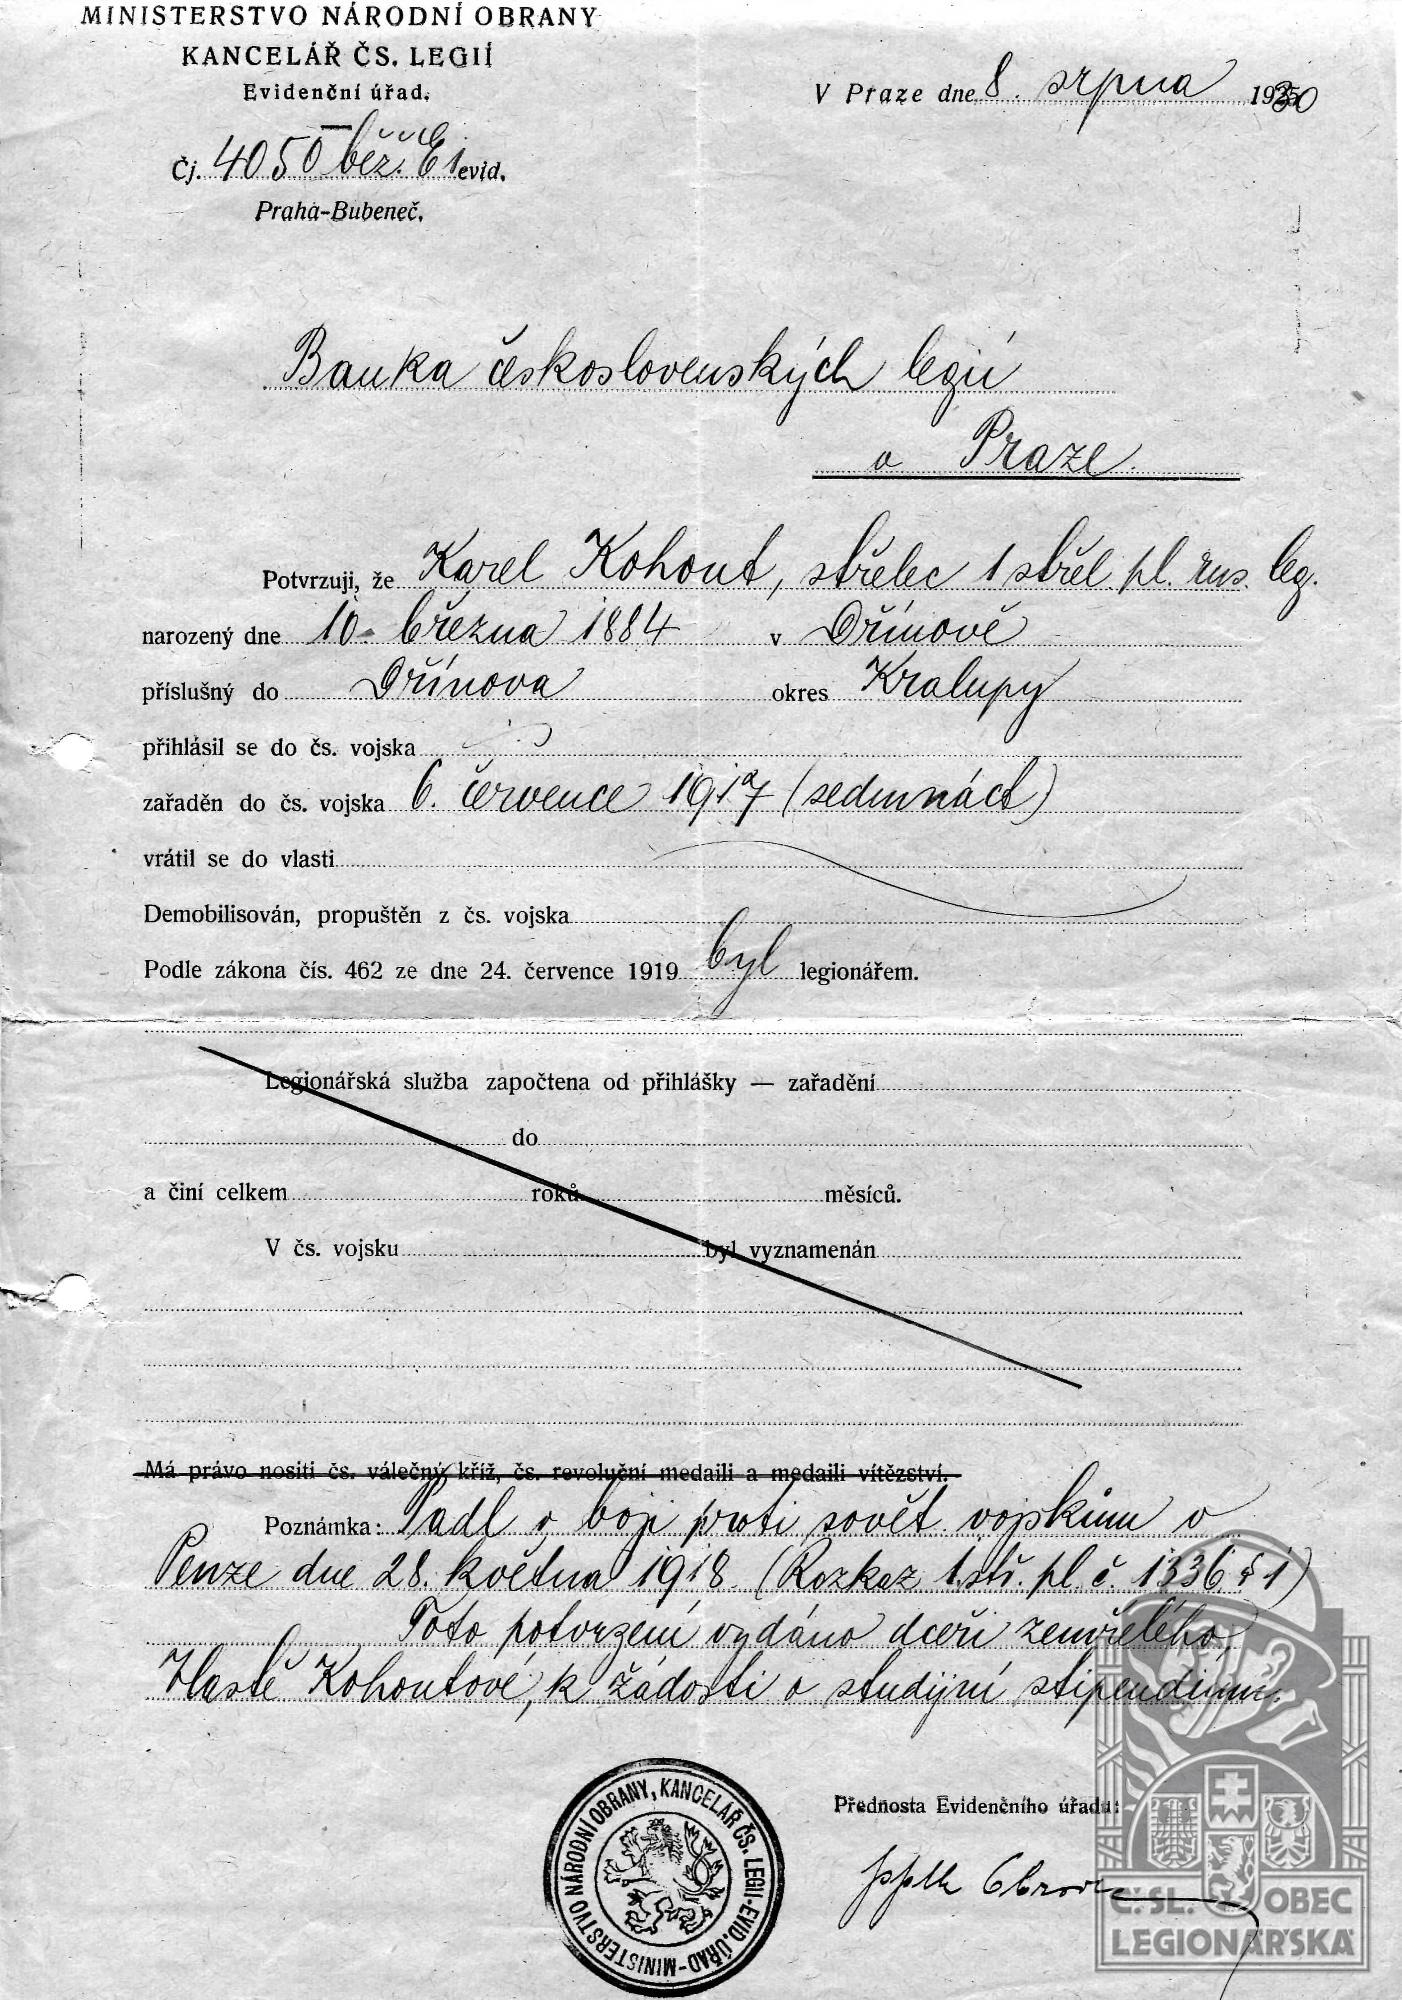 MINISTERSTVO NÁRODNÍ OBRANY
KANCELÁŘ ČS. LEGIÍ
Evidenční úřad.
V Praze dne 8. srpna 1930
Čj. 4050 běž. E1 evid.
Praha-Bubeneč.
Banka československých legií
v Praze.
Potvrzuji, že Karel Kohout, střelec 1 střel pl. rus. leg.
narozený dne 10. března 1884 v Dřínově
příslušný do Dřínova okres Kralupy
přihlásil se do čs. vojska
zařaděn do čs. vojska 6. července 1917 (sedmnáct)
vrátil se do vlasti
Demobilisován, propuštěn z čs. vojska
Podle zákona čís. 462 ze dne 24. července 1919 byl legionářem.
Legionářská služba započtena od přihlášky — zařadění
do
a činí celkem roků měsíců.
V čs. vojsku byl vyznamenán
Má právo nositi čs. válečný kříž, čs. revoluční medaili a medaili vítězství.
Poznámka: Padl v boji proti sovět. vojskům v
Penze dne 28. května 1918. (Rozkaz 1. stř. pl. č. 1336 § 1)
Toto potvrzení vydáno dceři zemřelého,
Vlastě Kohoutové, k žádosti o studijní stipendium.
Přednosta Evidenčního úřadu:
pplk
MINISTERSTVO NÁRODNÍ OBRANY, KANCELÁŘ ČS. LEGII-EVID. ÚŘAD-
Č. SL. OBEC
LEGIONÁŘSKÁ